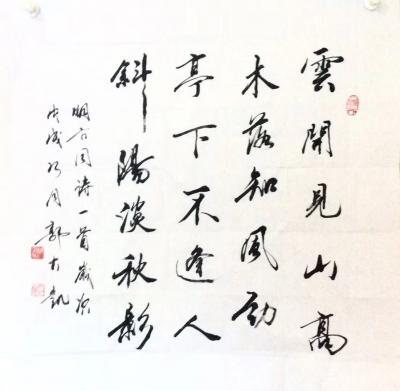 雲開見山高
木落知風劲
亭下不逢人
斜陽淡秋影
明 诗一首歲次
戊戌 月郭大凱